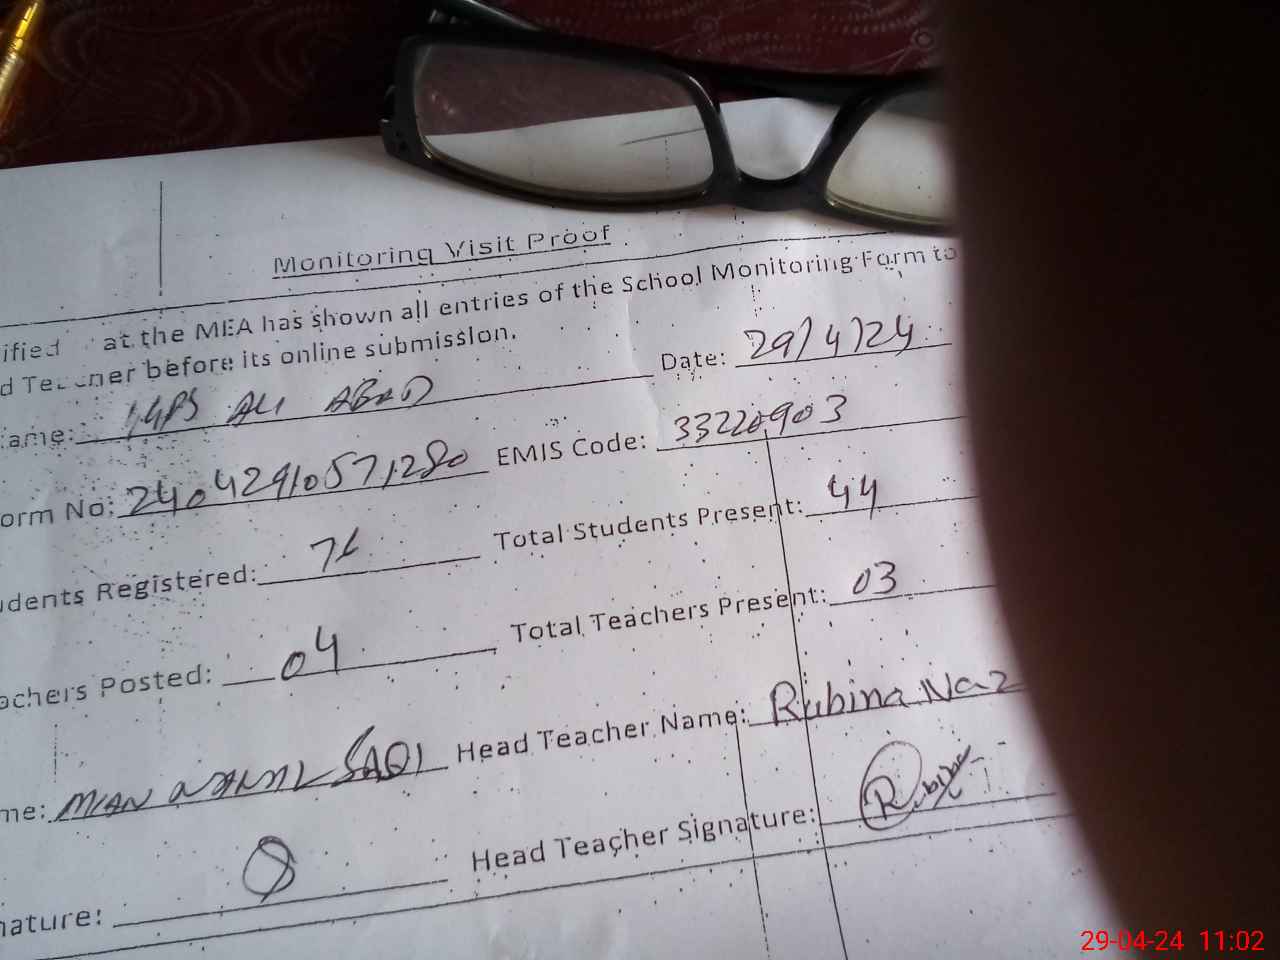 Monitoring Visit Proof
ified at the MEA has shown all entries of the School Monitoring Form to
d Teacher before its online submission.
ame: GPS ALI ABAD Date: 29/4/24
orm No: 24042910571280 EMIS Code: 33220903
udents Registered: Total Students Present: 44
achers Posted: 04 Total Teachers Present: 03
me: MIAN SAQI Head Teacher Name: Rubina Naz
nature: Head Teacher Signature: Rubina
29-04-24 11:02